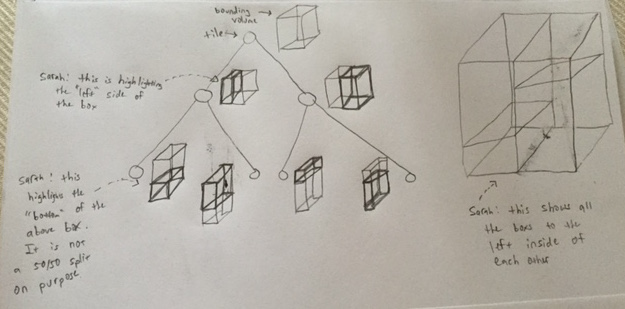 bounding
volume
tile
Sarah: this is highlighting
the "left" side of
the box
Sarah: this
highlights the
"bottom" of the
above box.
It is not
a 50/50 split
on purpose
Sarah: this shows all
the boxs to the
left inside of
each other